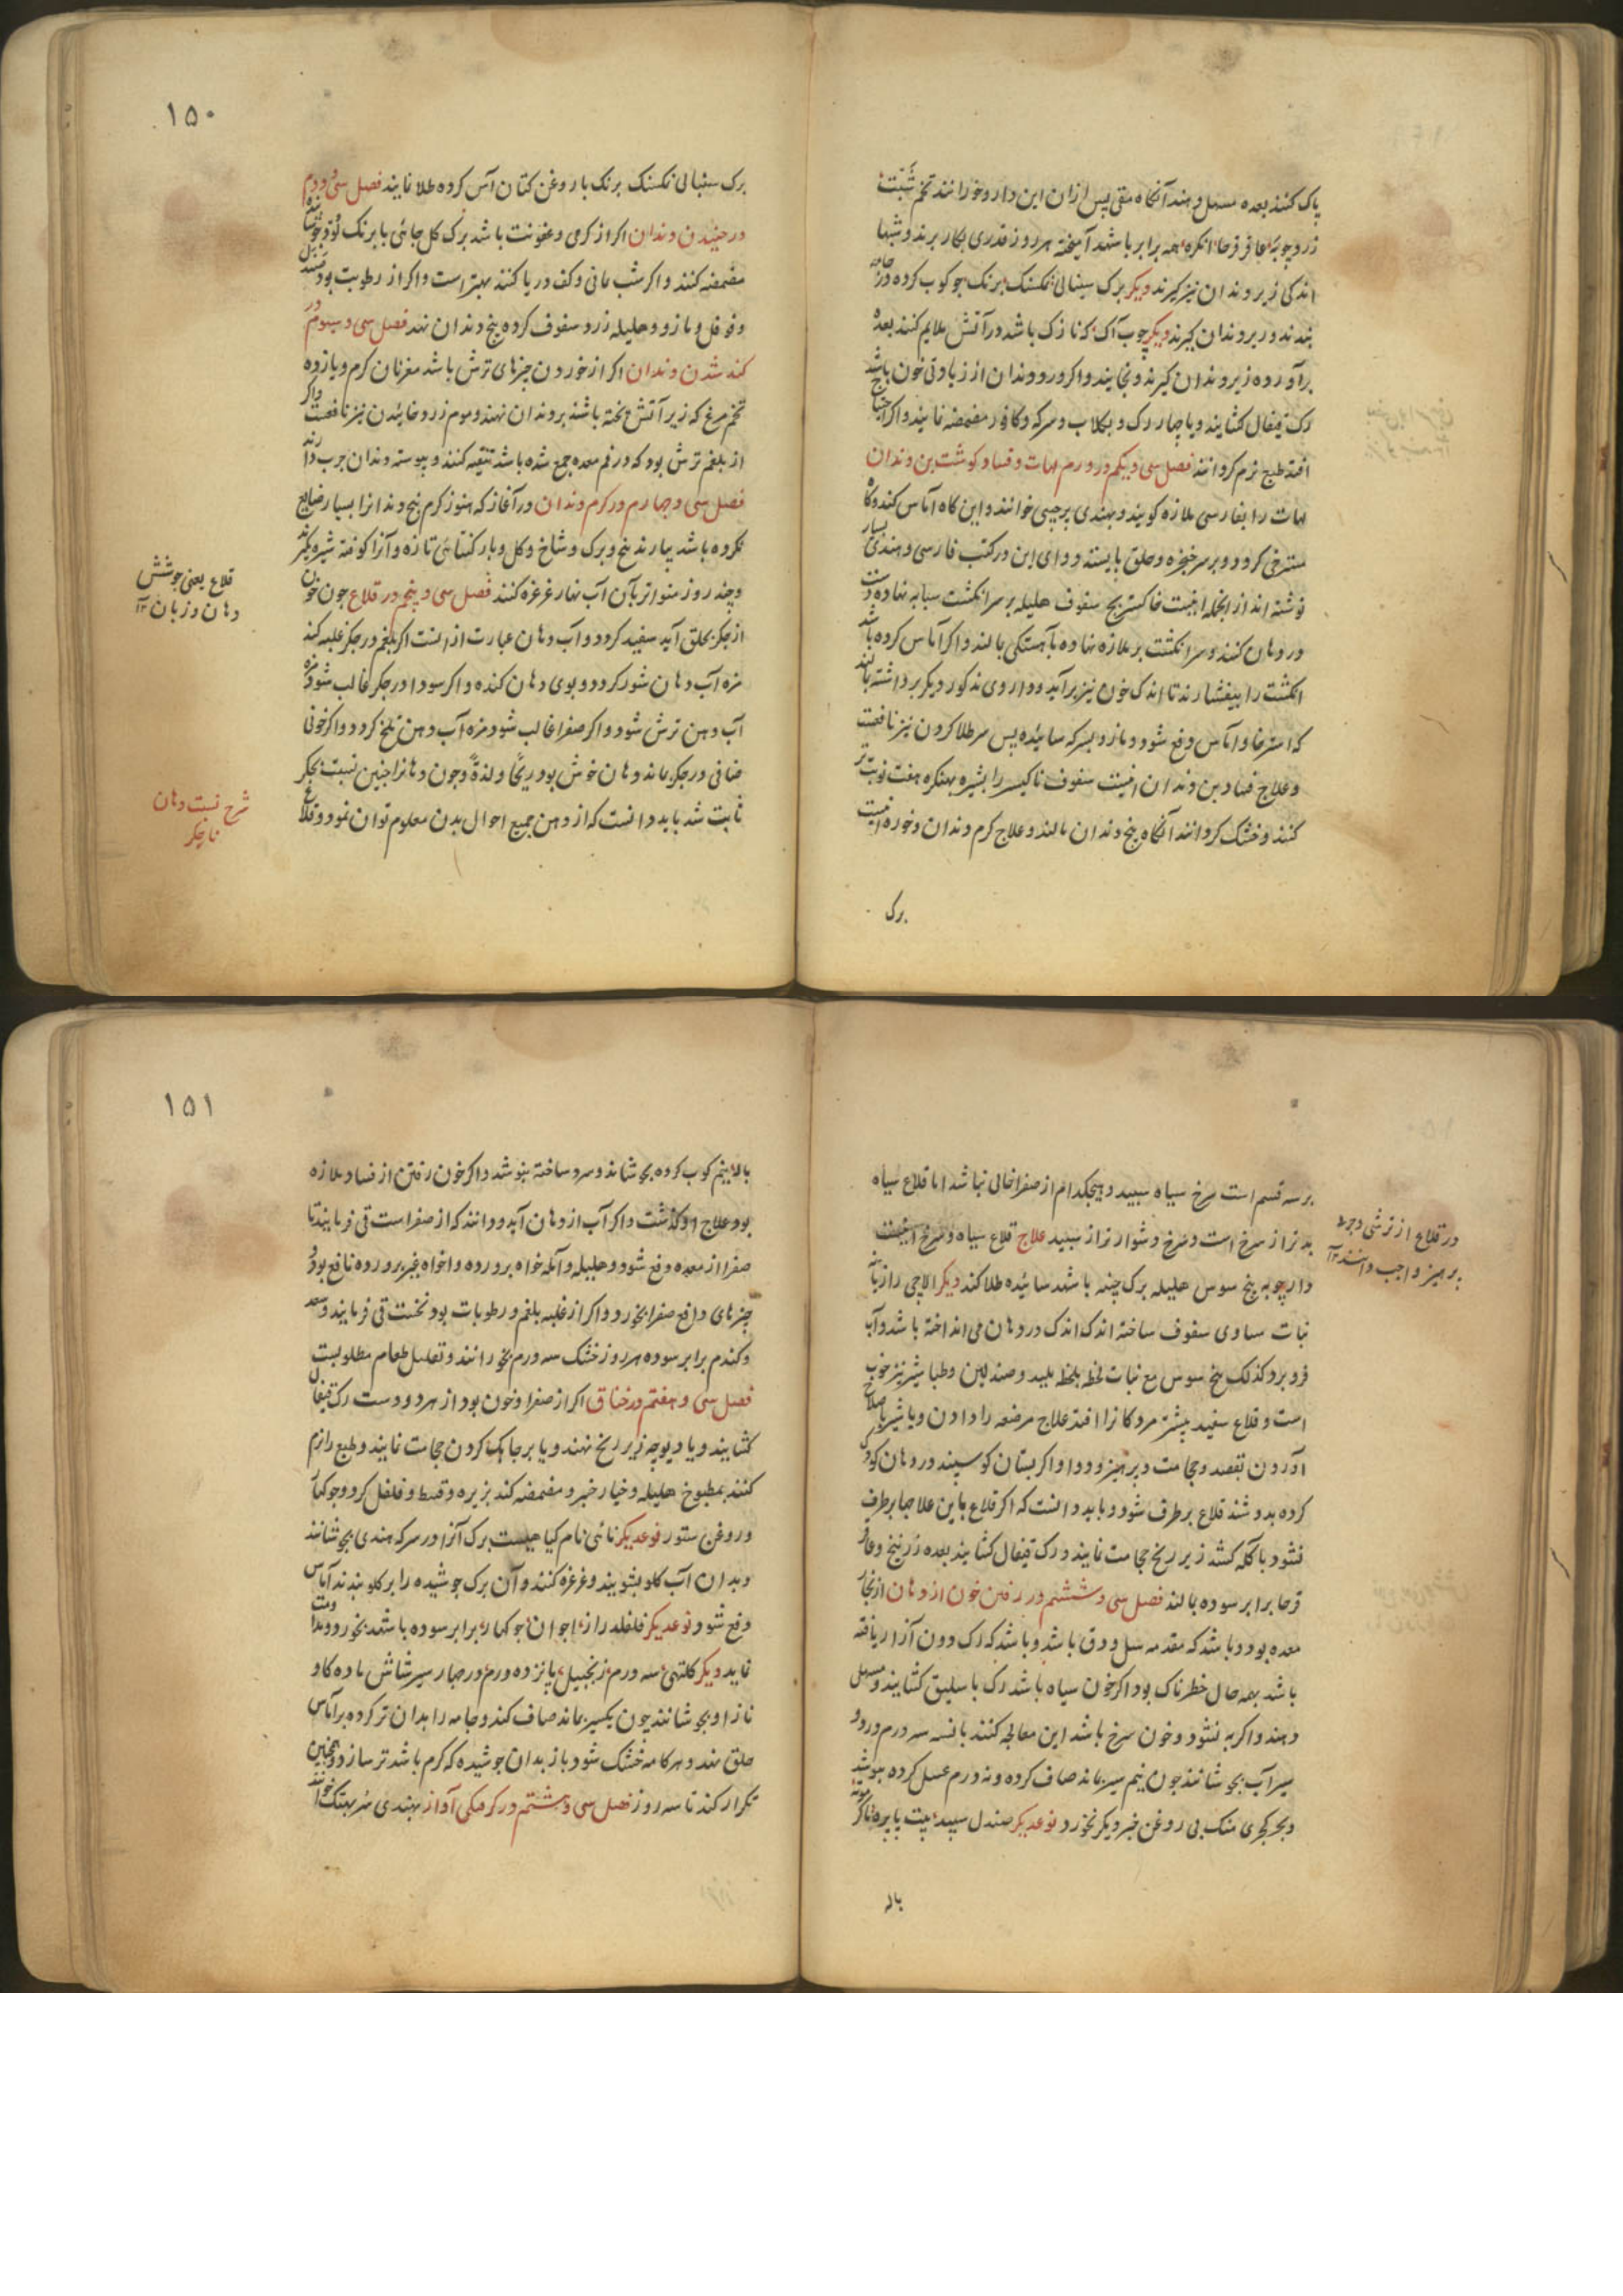 پاک کنند بعده مسهل دهند آنگاه متقی پس ازان این دارو خورانند تخم شبت
زردچوبه عاقرقرحا انکره همه برابر باشد آمیخته هر روز قدری بکار برند و شبها
اندکی زیر دندان نیز گیرند دیگر برک سینالی نمکسنک برنک جوکوب کرده در جامه
بندند و زیر دندان گیرند دیگر چوب آک که نازک باشد در آتش ملایم کنند بعده
برآورده زیر دندان گیرند و بخایند و اکر درد دندان از زیادتی خون باشد
رک قیفال کشایند و یا چهار رک و بکلاب و سرکه و کافور مضمضه نمایند و اکر احتیاج
افتد طبع نرم کردانند فصل سی و یکم در ورم لهات و فساد کوشت بن دندان
لهات را بفارسی ملازه کویند و بهندی خوانند و این کاه آماس کند و کاه
مسترخی کردد و بر سر حنجره و حلق بایستد دوای این در کتب فارسی و هندی بسیار
نوشته اند از انجمله اینست خاکستر سفوف هلیله بر سر انکشت سبابه نهاده
در دهان کنند و سر انکشت بر ملازه نهاده بآهستکی بمالند و اکر آماس کرده باشد
انکشت را بیفشارند تا اندک خون نیز برآید و داروی مذکور دیگر برداشته بمالند
که استرخا و آماس دفع شود و مازو بسرکه سائیده پس سر طلا کردن نیز نافعست
و علاج فساد بن دندان اینست سفوف ناکیسر را بشیره بهنکره هفت نوبت تر
کنند و خشک کردانند آنگاه بیخ دندان مالند و علاج کرم دندان و خوره اینست
برک
۱۵۰
برک سینالی نمکسنک برنک با روغن کتان آس کرده طلا نمایند فصل سی و دوم
در جنبیدن دندان اکر از کرمی و عفونت باشد برک کل جائی با برنک
مضمضه کنند و اکر شب یمانی و کف دریا کنند بهتر است و اکر از رطوبت بود
و فوفل و مازو و هلیله زرد سفوف کرده بیخ دندان نهند فصل سی و سیوم در
کند شدن دندان اکر از خوردن چیزهای ترش باشد مغز نان کرم و یا زرده
تخم مرغ که زیر آتش پخته باشند بر دندان نهند و موم زرد خائیدن نیز نافعست و اکر
از بلغم ترش بود که در فم معده جمع شده باشد تنقیه کنند و پیوسته دندان چرب دارند
فصل سی و چهارم در کرم دندان در آغاز که هنوز کرم بیخ دندانرا بسیار ضایع
نکرده باشد بیارند بیخ و برک و شاخ و کل و بار کتائی تازه و آنرا کوفته شیره بکیرند
و چند روز متواتر بآن آب نهار غرغره کنند فصل سی و پنجم در قلاع چون خون
از جکر بحلق آید سفید کردد و آب دهان عبارت از انست اکر بلغم در جکر غلبه کند
مزه آب دهان شور کردد و بوی دهان کنده و اکر سودا در جکر غالب شود مزه
آب دهن ترش شود و اکر صفرا غالب شود مزه آب دهن تلخ کردد و اکر خونی
صافی در جکر بماند دهان خوش بود ریحًا و لذةً و چون دهانرا چنین نسبت بجکر
ثابت شد باید دانست که از دهن جمیع احوال بدن معلوم توان نمود و قلاع
قلاع یعنی جوشش
دهان و زبان ۱۲
شرح نسبت دهان
با جکر
بر سه قسم است سرخ سیاه سپید و هیچکدام از صفرا خالی نباشد اما قلاع سیاه
بدتر از سرخ است و سرخ دشوارتر از سپید علاج قلاع سیاه و سرخ اینست
دارچوبه بیخ سوس هلیله برک چنبه باشد سائیده طلا کند دیگر الاچی رازیانه
نبات مساوی سفوف ساخته اندک اندک در دهان می انداخته باشد و آب
فرو برد کذلک بیخ سوس مع نبات لحظه بلحظه بلیسد و صندلین و طباشیر نیز خوب
است و قلاع سفید بیشتر مر کودکانرا افتد علاج مرضعه را دادن و یا شیر باصلاح
آوردن بفصد و حجامت و پرهیز و دوا و اکر پستان کوسپند در دهان کودک
کرده بدوشند قلاع برطرف شود و باید دانست که اکر قلاع باین علاجها برطرف
نشود باکله کشد زیر زنخ حجامت نمایند و رک قیفال کشایند بعده زرنیخ و عاقر
قرحا برابر سوده بمالند فصل سی و ششم در رفتن خون از دهان از بخار
معده بود و باشد که مقدمه سل و دق باشد و باشد که رک درون آزار یافته
باشد بهمه حال خطرناک بود اکر خون سیاه باشد رک باسلیق کشایند و مسهل
دهند و اکر به نشود و خون سرخ باشد این معالجه کنند بانسه سه درم در دو
سیر آب بجوشانند چون نیم سیر بماند صاف کرده و نه درم عسل کرده بنوشد
و بجز کهچری منک بی روغن چیز دیگر نخورد نوعدیکر صندل سپید پت پاپره
باله
در قلاع از ترشی و چرب
پرهیز واجب دانند ۱۲
۱۵۱
باله نیم کوب کرده بجوشاند و سرد ساخته بنوشد و اکر خون رفتن از فساد ملازه
بود علاج او کذشت و اکر آب از دهان آید و دانند که از صفراست قی فرمایند تا
صفرا از معده دفع شود و هلیله و آمله خواه پرورده و خواه غیر پرورده نافع بود و
چیزهای دافع صفرا بخورد و اکر از غلبه بلغم و رطوبات بود نخست قی فرمایند و سعد
و کندم برابر سوده هر روز خشک سه درم بخورانند و تقلیل طعام مطلوبست
فصل سی و هفتم در خناق اکر از صفرا و خون بود از هر دو دست رک قیفال
کشایند و یا دیوچه زیر زنخ نهند و یا بر جا پک کردن حجامت نمایند و طبع را نرم
کنند بمطبوخ هلیله و خیارچنبر و مضمضه کند بزیره و قسط و فلفل کرد و جوکهار
و روغن ستور نوعدیکر نائی نام کیاهیست برک آنرا در سرکه هندی بجوشانند
و بدان آب کلو بشویند و غرغره کنند و آن برک جوشیده را بر کلو بندند آماس
دفع شود نوعدیکر فلفلدراز اجوان جوکهار برابر سوده باشد بخورد و مداومت
نماید دیگر کلتهی سه درم زنجبیل پانزده درم در چهار سیر شاش ماده کاو
نازا و بجوشانند چون یکسیر بماند صاف کند و جامه را بدان تر کرده بر آماس
حلق نهند و هرکاه جامه خشک شود باز بدان جوشیده که کرم باشد تر سازد و همچنین
تکرار کند تا سه روز فصل سی و هشتم در کرفتکی آواز بهندی خوانند